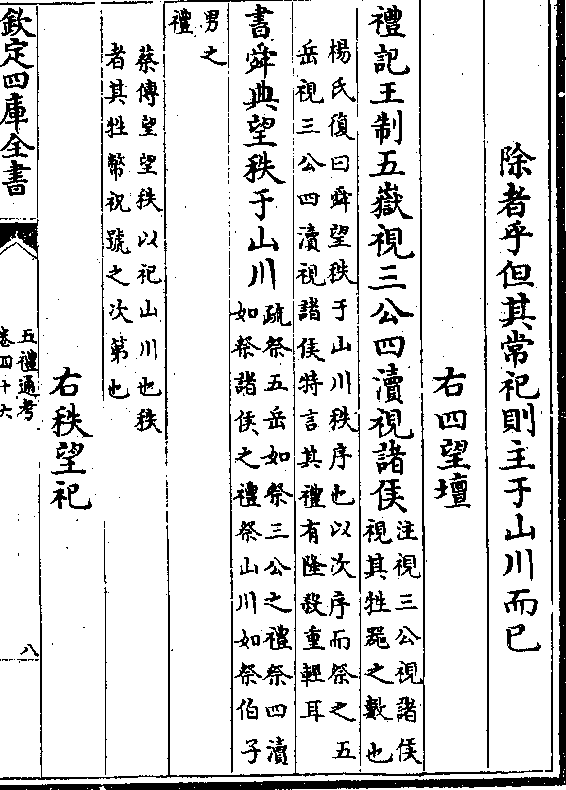 除者乎但其常祀則主于山川而已
右四望壇
禮記王制五嶽視三公四瀆視諸侯注視三公視諸侯視其牲器之數也
楊氏復曰舜望秩于山川秩序也以次序而祭之五
岳視三公四瀆視諸侯特言其禮有隆殺重輕耳
書舜典望秩于山川疏祭五岳如祭三公之禮祭四瀆如祭諸侯之禮祭山川如祭伯子
男之
禮
蔡傳望望秩以祀山川也秩
者其牲幣祝號之次第也
右秩望祀
欽定四庫全書
五禮通考
卷四十六
八